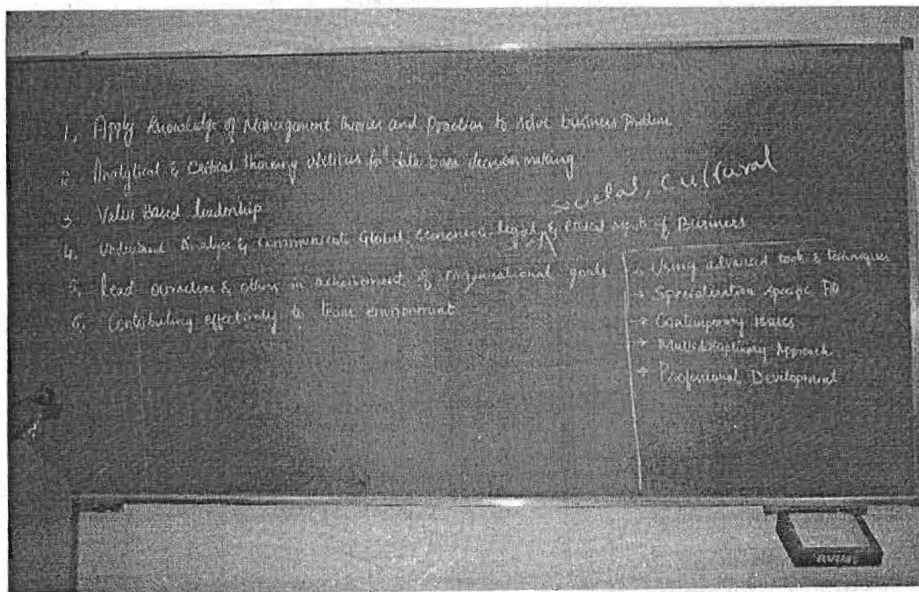 1. Apply Knowledge of Management theories and Practices to solve business problem
2. Analytical & Critical thinking abilities for data base decision making
3. Value Based leadership
societal, cultural
4. Understand Analyse & Communicate Global, economics, legal, & ethical aspects of Business
5. Lead ourselves & others in achievement of organizational goals
6. Contributing effectively to team environment
→ Using advanced tools & techniques
→ Specialization specific
→ Contemporary issues
→ Multidisciplinary Approach
→ Professional Development